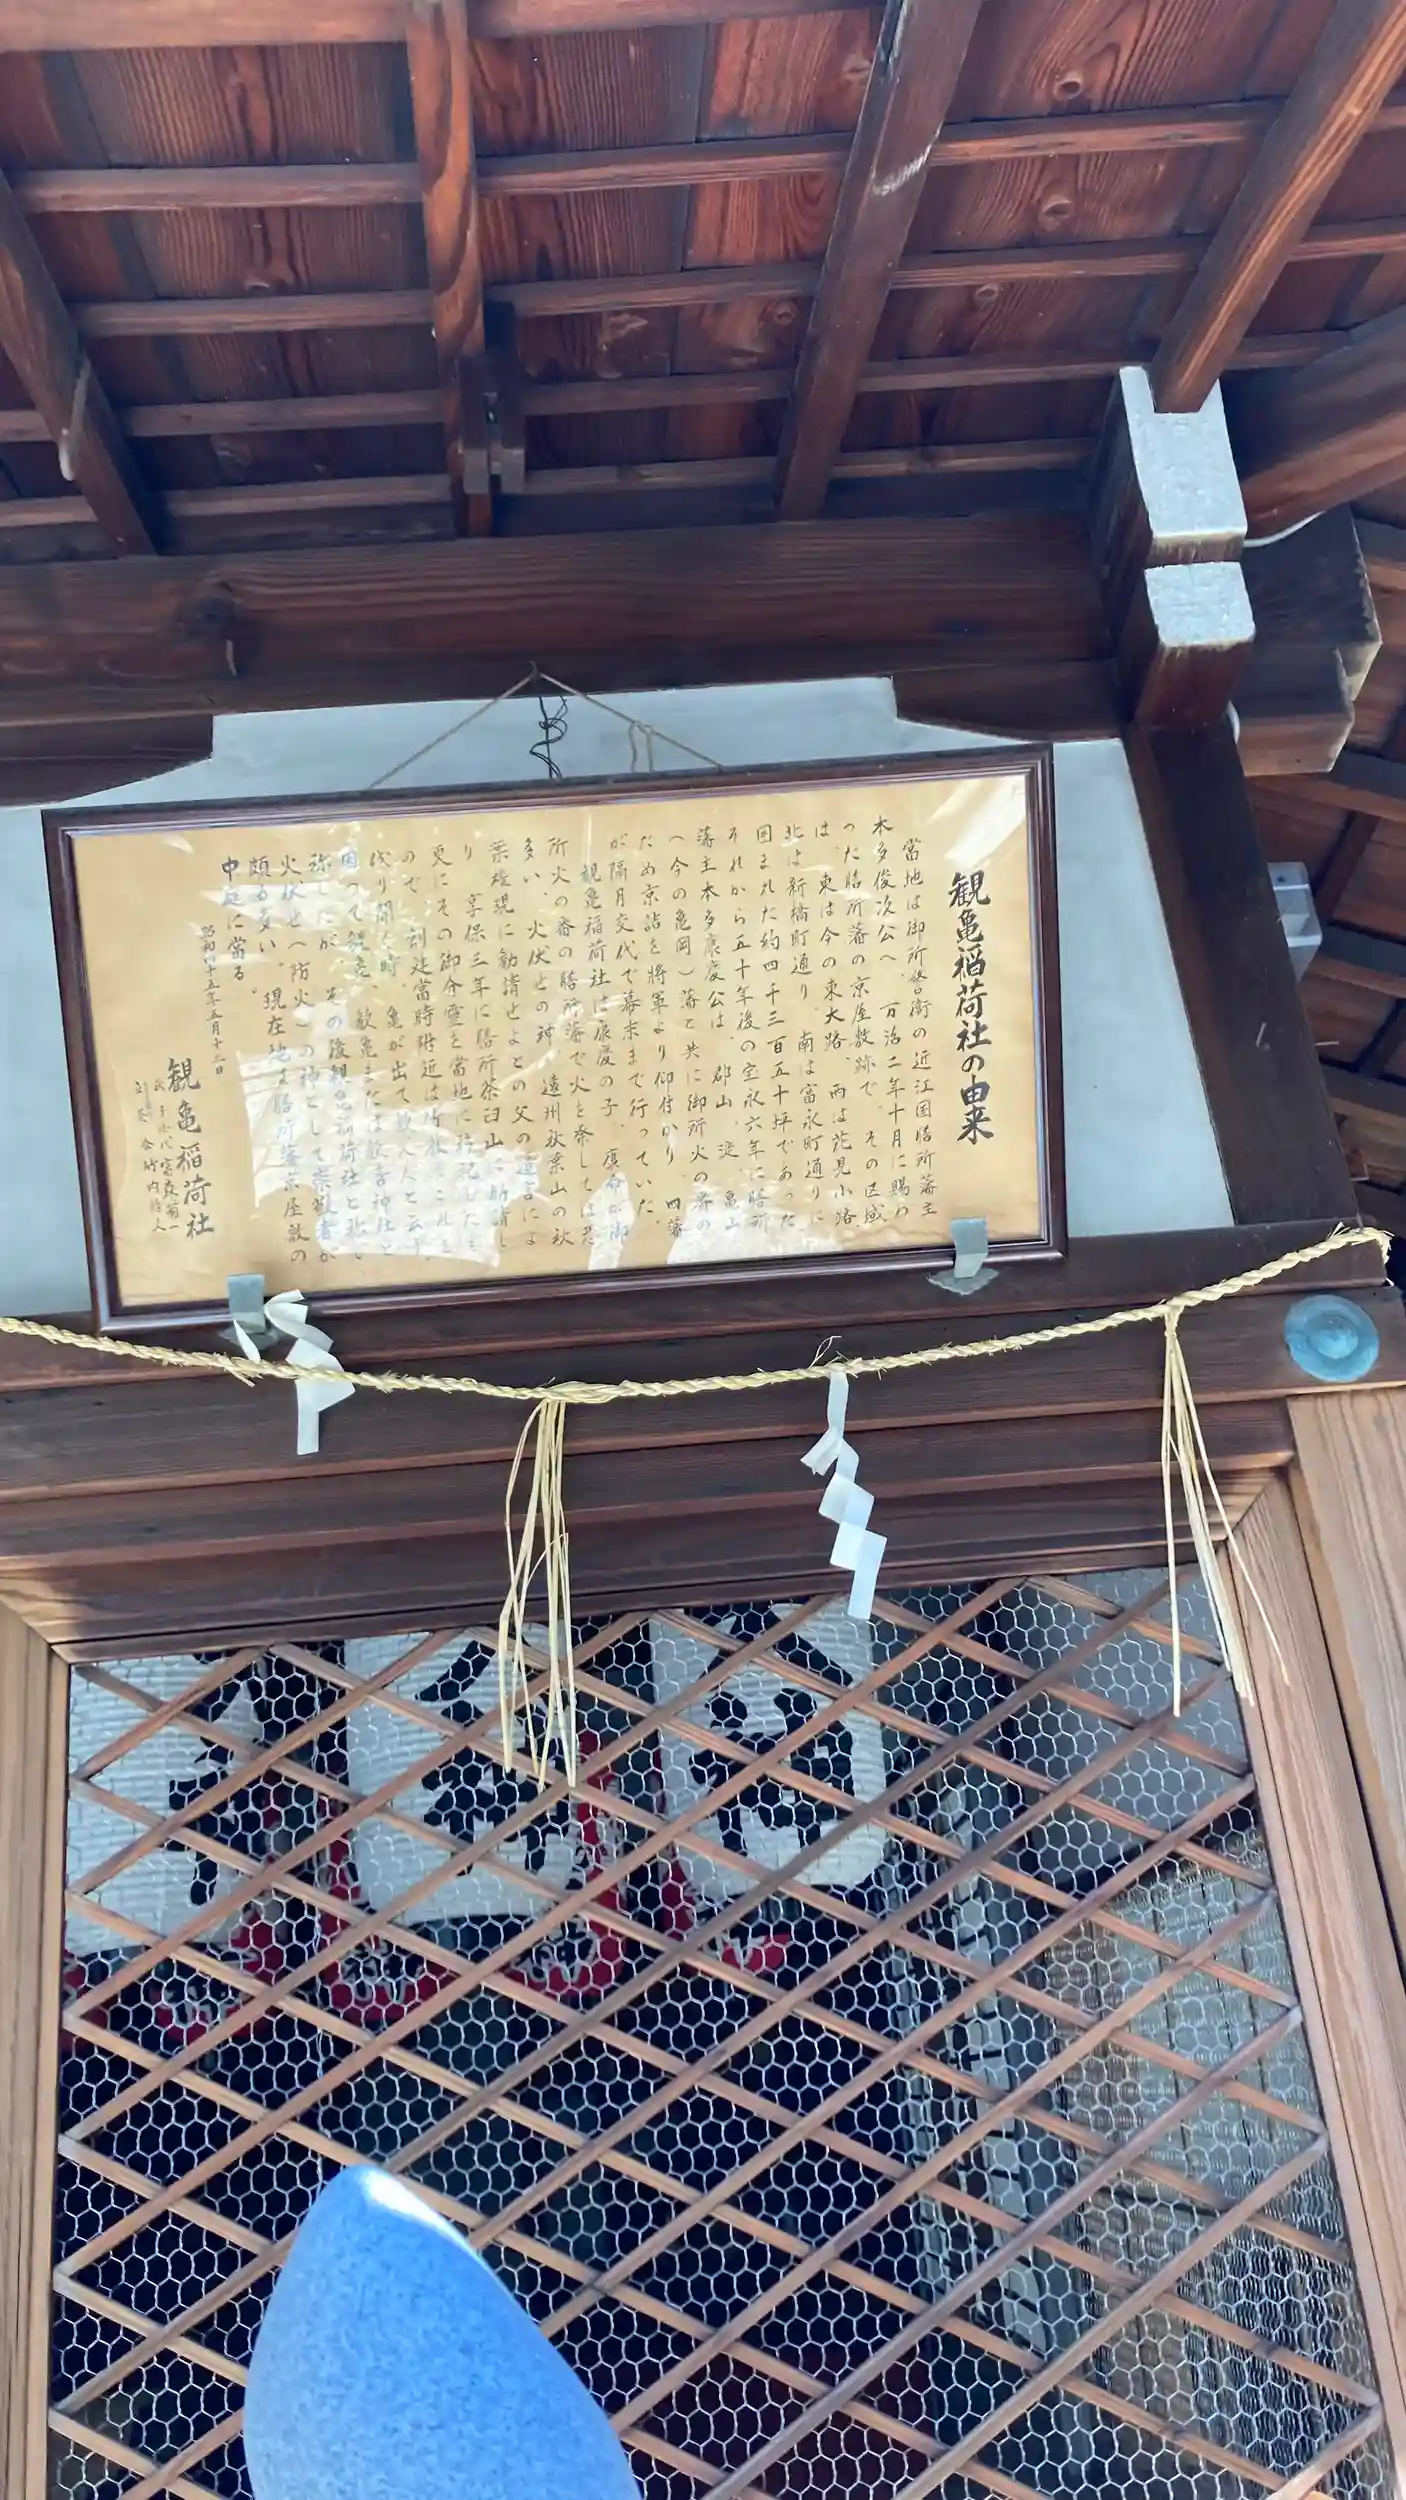 観亀稲荷社の由来
當地は御所警衛の近江国膳所藩主
本多俊次公へ、万治二年十月に賜わ
った膳所藩の京屋敷跡で、その区域
は、東は今の東大路、西は花見小路、
北は新橋町通り、南は富永町通りに
囲まれた約四千三百五十坪であった
それから五十年後の宝永六年に膳所
藩主本多康慶公は、郡山、淀、亀山
(今の亀岡)藩と共に御所火の番の
ため京詰を将軍より仰付かり、四藩
が隔月交代で幕末まで行っていた。
観亀稲荷社は康慶の子、康命が御
所火の番の膳所藩で火を災しては恐
多い、火伏せの神、遠州秋葉山の秋
葉権現に勧請せよとの父の遺言によ
り、享保三年に膳所茶臼山に勧請し
更にその御分霊を當地に
ので、創建當時附近は竹
伐り開く時、亀が出て
因って観亀、歓亀または
称したが、その後観亀稲荷社と称し
火伏せ(防火)の神として崇敬者が
頗る多い。現在地は膳所藩京屋敷の
中庭に當る。
昭和四十五年五月十三日
観亀稲荷社